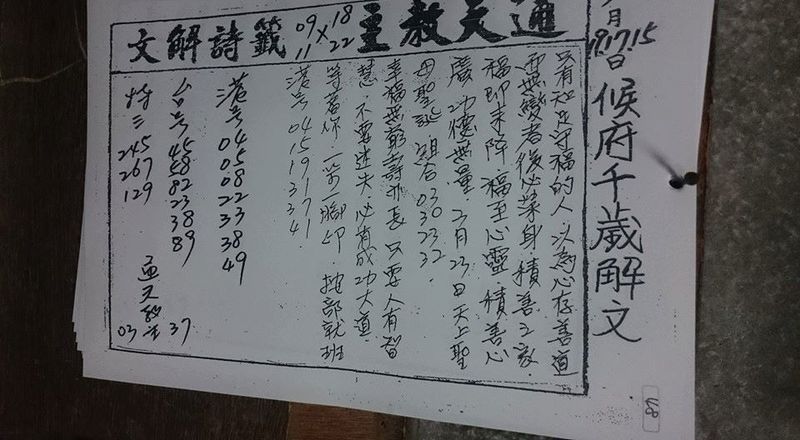 通天教主籤詩解文
09 × 18
11 22
月
日
19.17.15
候府千歲解文
只有知足守福的人以為心存善道
而無變者後必榮身.積善之家
福即來降福至心靈.積善心
慶功德無量.二月23日天上聖
母聖誕.組合030 30 23 32.
幸福無窮壽亦長只要人有智
慧不要迷失必有成功大道.
等著你一步一腳印.按部就班
港号04 15 19 31 7 34
港号04 05 08 22 33 38 49
台号45 58 82 23 38 89
特三245 267 129
03 37
48